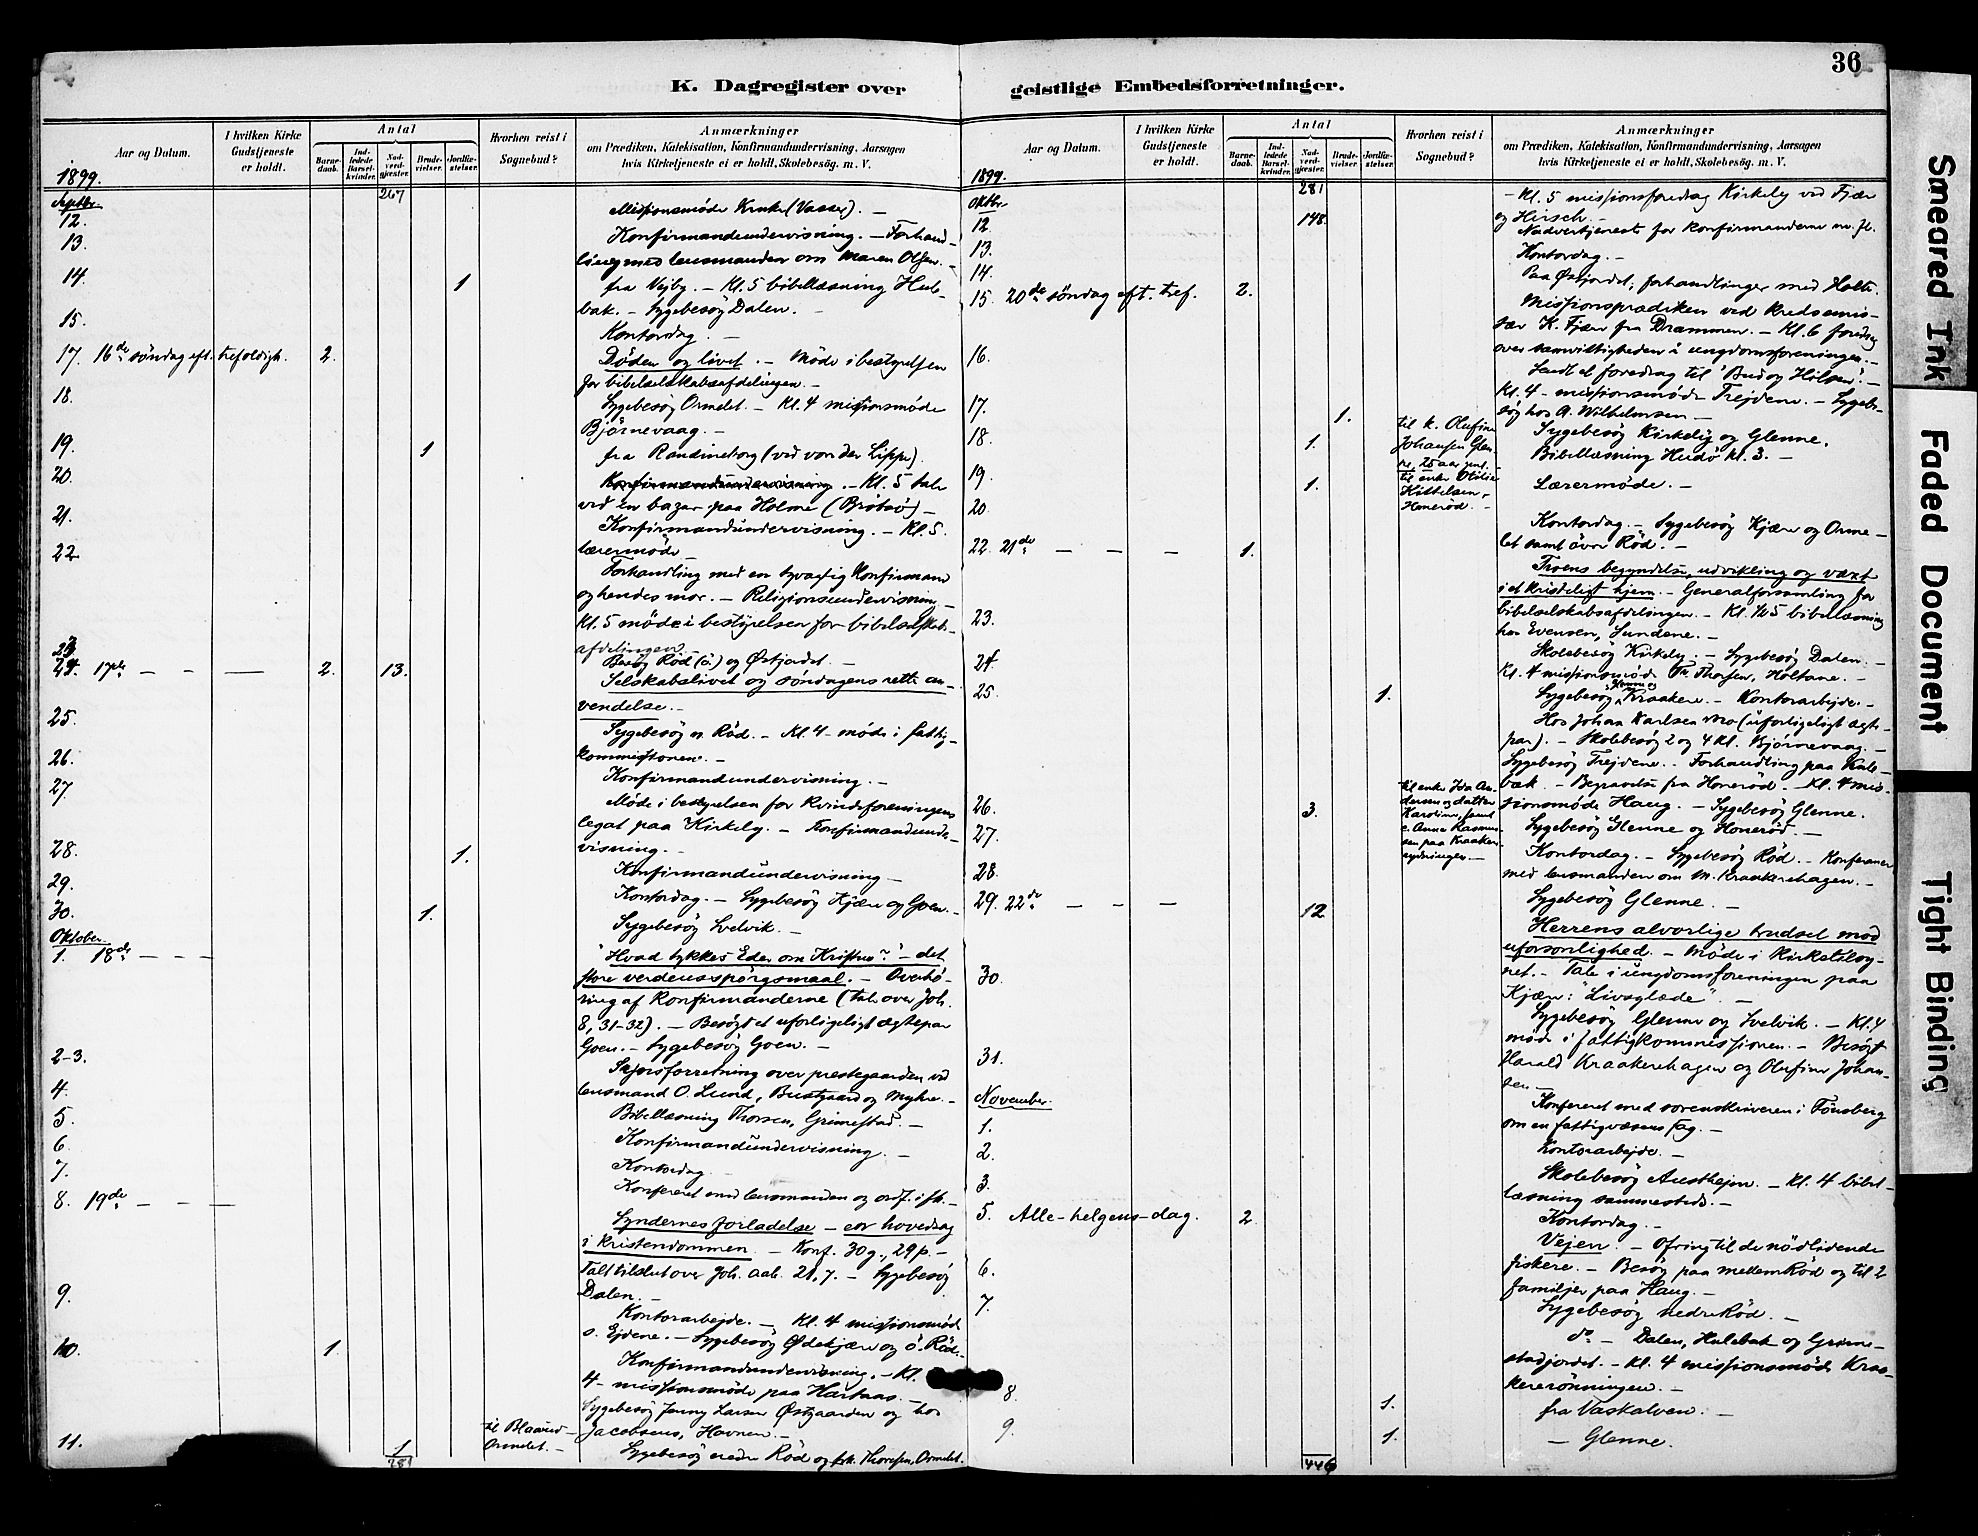 36
K. Dagregister over
geistlige Embedsforretninger.
Aar og Datum.
I hvilken Kirke Gudstjeneste er holdt.
Antal
Barne-daab.
Ind-ledede Barsel-kvinder.
Nad-verd-gjæster.
Brude-vielser.
Jordfæ-stelser.
Hvorhen reist i Sognebud?
Anmærkninger
om Prædiken, Katekisation, Konfirmandundervisning, Aarsagen
hvis Kirketjeneste ei er holdt, Skolebesög. m. V.
1899.
267
Septbr.
12. Missionsmöde Kruke (Vasser). —
13. Konfirmandundervisning. — Forhand-
ling med lensmanden om Maren Olsen. —
14. 1 fra Vejby. — Kl. 5 bibellæsning Hule-
bak. — Sygebesög Dalen. —
15. Kontordag. —
17. 16de söndag eft. trefoldigh. 2. Döden og livet. — Möde i bestyrelsen
for bibelselskabsafdelingen. —
18. Sygebesög Ormelet. — Kl. 4 missionsmöde
Björnevaag. —
19. 1 fra Randineborg (ved von der Lippe).
20. Konfirmandundervisning. — Kl. 5 tale
ved en bazar paa Holme (Brötsö) —
21. Konfirmandundervisning. — Kl. 5.
lærermöde —
22. Forhandling med en svagelig konfirmand
og hendes mor. — Religionsundervisning —
Kl. 5 möde i bestyrelsen for bibelselskabs-
afdelingen. —
23. Besög Röd (ö.) og Östjordet. —
24. 17de — — — 2. 13. Selskabslivet og söndagens rette an-
vendelse. —
25. Sygebesög n. Röd. — Kl. 4 möde i fattig-
kommissionen. —
26. Konfirmandundervisning. —
27. Möde i bestyrelsen for Kvindeforeningens
legat paa Kirkely. — Konfirmandunder-
visning. —
28. 1. Konfirmandundervisning —
29. Kontordag. — Sygebesög Kjære og Goen. —
30. 1. Sygebesög Svelvik. —
Oktober.
1. 18de — — — "Hvad tykkes Eder om Kristus?" — det
store verdensspörgsmaal. — Overhö-
ring af konfirmanderne (tale over Joh.
8, 31-32). — Besögt et uforligeligt ægtepar
Goen. — Sygebesög Goen. —
2-3. Skjönsforretning over prestegaarden ved
lensmand O. Lund, Bustgaard og Myhre. —
4. Bibellæsning Thorsen, Grimestad. —
5. Konfirmandundervisning. —
6. Kontordag.
7. Konfereret med lensmanden og ordf. i sk.
8. 19de — — — Syndernes forladelse — en hovedsag
i kristendommen. — Konf. 30 g., 29 p. —
Talt tilslut over Joh. aab. 21,7. — Sygebesög
Dalen. —
9. Kontorarbejde. — Kl. 4 missionsmöde
ö. Ejdene. — Sygebesög Ödekjære og ö. Röd.
10. 1. Konfirmandundervisning. — Kl.
4 missionsmöde paa Hartaas. —
Sygebesög Jenny Larsen Östgaarden og hos
Jacobsens, Havnen. —
11. 1 til Blaarud
Ormelet. —
Sygebesög nedre Röd og frk. Thoresen, Ormelet.
281
Aar og Datum.
I hvilken Kirke Gudstjeneste er holdt.
Antal
Barne-daab.
Ind-ledede Barsel-kvinder.
Nad-verd-gjæster.
Brude-vielser.
Jordfæ-stelser.
Hvorhen reist i Sognebud?
Anmærkninger
om Prædiken, Katekisation, Konfirmandundervisning, Aarsagen
hvis Kirketjeneste ei er holdt, Skolebesög. m. V.
1899.
281
Oktbr.
— Kl. 5 missionsforedrag Kirkely ved Fjære
og Hirsch. —
12. 148. Nadvertjeneste for konfirmanderne m. fl.
13. Kontordag. —
14. Paa Östjordet; forhandlinger med Holte.
15. 20de söndag eft. tref. 2. Missionsprædiken ved kredsmis-
sær K. Fjære fra Drammen. — Kl. 6 foredrag
over samvittigheden i ungdomsforeningen. —
16. Sendt et foredrag til "Bud og Hilsen". —
Kl. 4 missionsmöde Trejdene. — Sygebe-
sög hos A. Wilhelmsen —
17. 1. Sygebesög Kirkely og Glenne.
18. 1. til k. Olufine
Johansen Glen-
ne, 25 aar gml. —
Bibellæsning Hudö kl. 3. —
19. 1. til enke Otilie
Kittelsen,
Honeröd. —
Lærermöde. —
20. Kontordag. — Sygebesög Kjære og Orme-
let samt övre Röd. —
22. 21de — — — 1. Troens begyndelse, udvikling og vækst
i et kristeligt hjem. — Generalforsamling for
bibelselskabsafdelingen. — Kl. ½5 bibellæsning
hos Evensen, Sundene. —
23. Skolebesög Kirkely. — Sygebesög Dalen. —
Kl. 4 missionsmöde Th. Thorsen, Holtane. —
24. Sygebesög Kraakere. — Kontorarbejde. —
25. 1. Hos Johan Karlsen Mo (uforligeligt ægte-
par). — Skolebesög 2 og 4 kl. Björnevaag. —
Sygebesög Trejdene. — Forhandling paa Hule-
bæk. — Begravelse fra Honeröd. — Kl. 4 mis-
sionsmöde Haug. — Sygebesög Glenne.
26. 3. til enke Ida An-
dersen og datter
Karoline, samt
e. Anne Rasmus-
sen paa Kraakere-
rydningen. —
Sygebesög Glenne og Honeröd. —
27. Kontordag. — Sygebesög Röd. — Konferance
med lensmanden om M. Kraakerehagen. —
28. Sygebesög Glenne. —
29. 22de — — — 12 Herrens alvorlige trudsel mod
uforsonlighed. — Möde i kirketilsy-
net. — Tale i ungdomsforeningen paa
Kjære: "Livsglæde". —
30. Sygebesög Glenne og Svelvik. — Kl. 4
möde i fattigkommissionen. — Besögt
Harald Kraakerehagen og Olufine Johan-
sen —
31. Konfereret med sorenskriveren i Tönsberg
om en fattigvæsens sag. —
November.
1. Kontorarbejde. —
2. Skolebesög Austhejen. — Kl. 4 bibel-
læsning sammesteds. —
3. Kontordag. —
5. Alle-helgens-dag. 2. Vejen. — Ofring til de nödlidende
fiskere. — Besög paa mellem Röd og til 2
familjer paa Haug. —
6. Sygebesög nedre Röd. —
7. do — Dalen, Hulebak og Grime-
stadjordet. — Kl. 4 missionsmöde Kraa-
kererönningen. —
8. 1. fra Vaskalven. —
9. 1. — Glenne.
446
Smeared Ink
Faded Document
Tight Binding